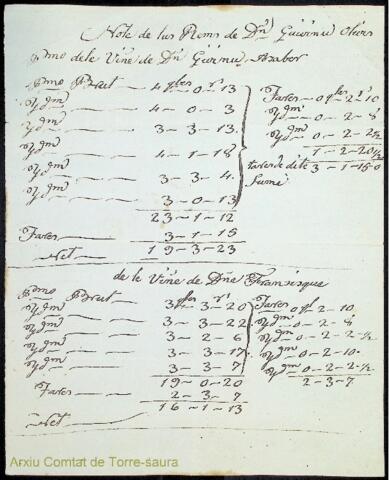 Note de lus Rems de Dn Guiomu Olivis
Pmo dele Viñe de Dn Guiomu Azabor
Pmo Brut — 4 qles 0 rs 13
Ydm — 4 - 0 - 3
Ydm — 3 - 3 - 13
Ydm — 4 - 1 - 18
Ydm — 3 - 3 - 4
Ydm — 3 - 0 - 13
23 - 1 - 12
Tares — 3 - 1 - 15
Net — 19 - 3 - 23
Tares - 0 - 2 - 10
Ydm - 0 - 2 - 8
Ydm - 0 - 2 - 2 1/2
1 - 2 - 20 1/2
tares de dite 3 - 1 - 15 - 0
sume
de le Viñe de Dñe Fransisque
Pmo Brut — 3 qles 3 rs 20
Ydm — 3 - 3 - 22
Ydm — 3 - 2 - 6
Ydm — 3 - 3 - 17
Ydm — 3 - 3 - 7
19 - 0 - 20
Tares — 2 - 3 - 7
Net — 16 - 1 - 13
Tares 0 ql 2 - 10
Ydm - 0 - 2 - 8
Ydm - 0 - 2 - 2 1/2
Ydm - 0 - 2 - 10
Ydm - 0 - 2 - 2 1/2
2 - 3 - 7
Arxiu Comtat de Torre-saura